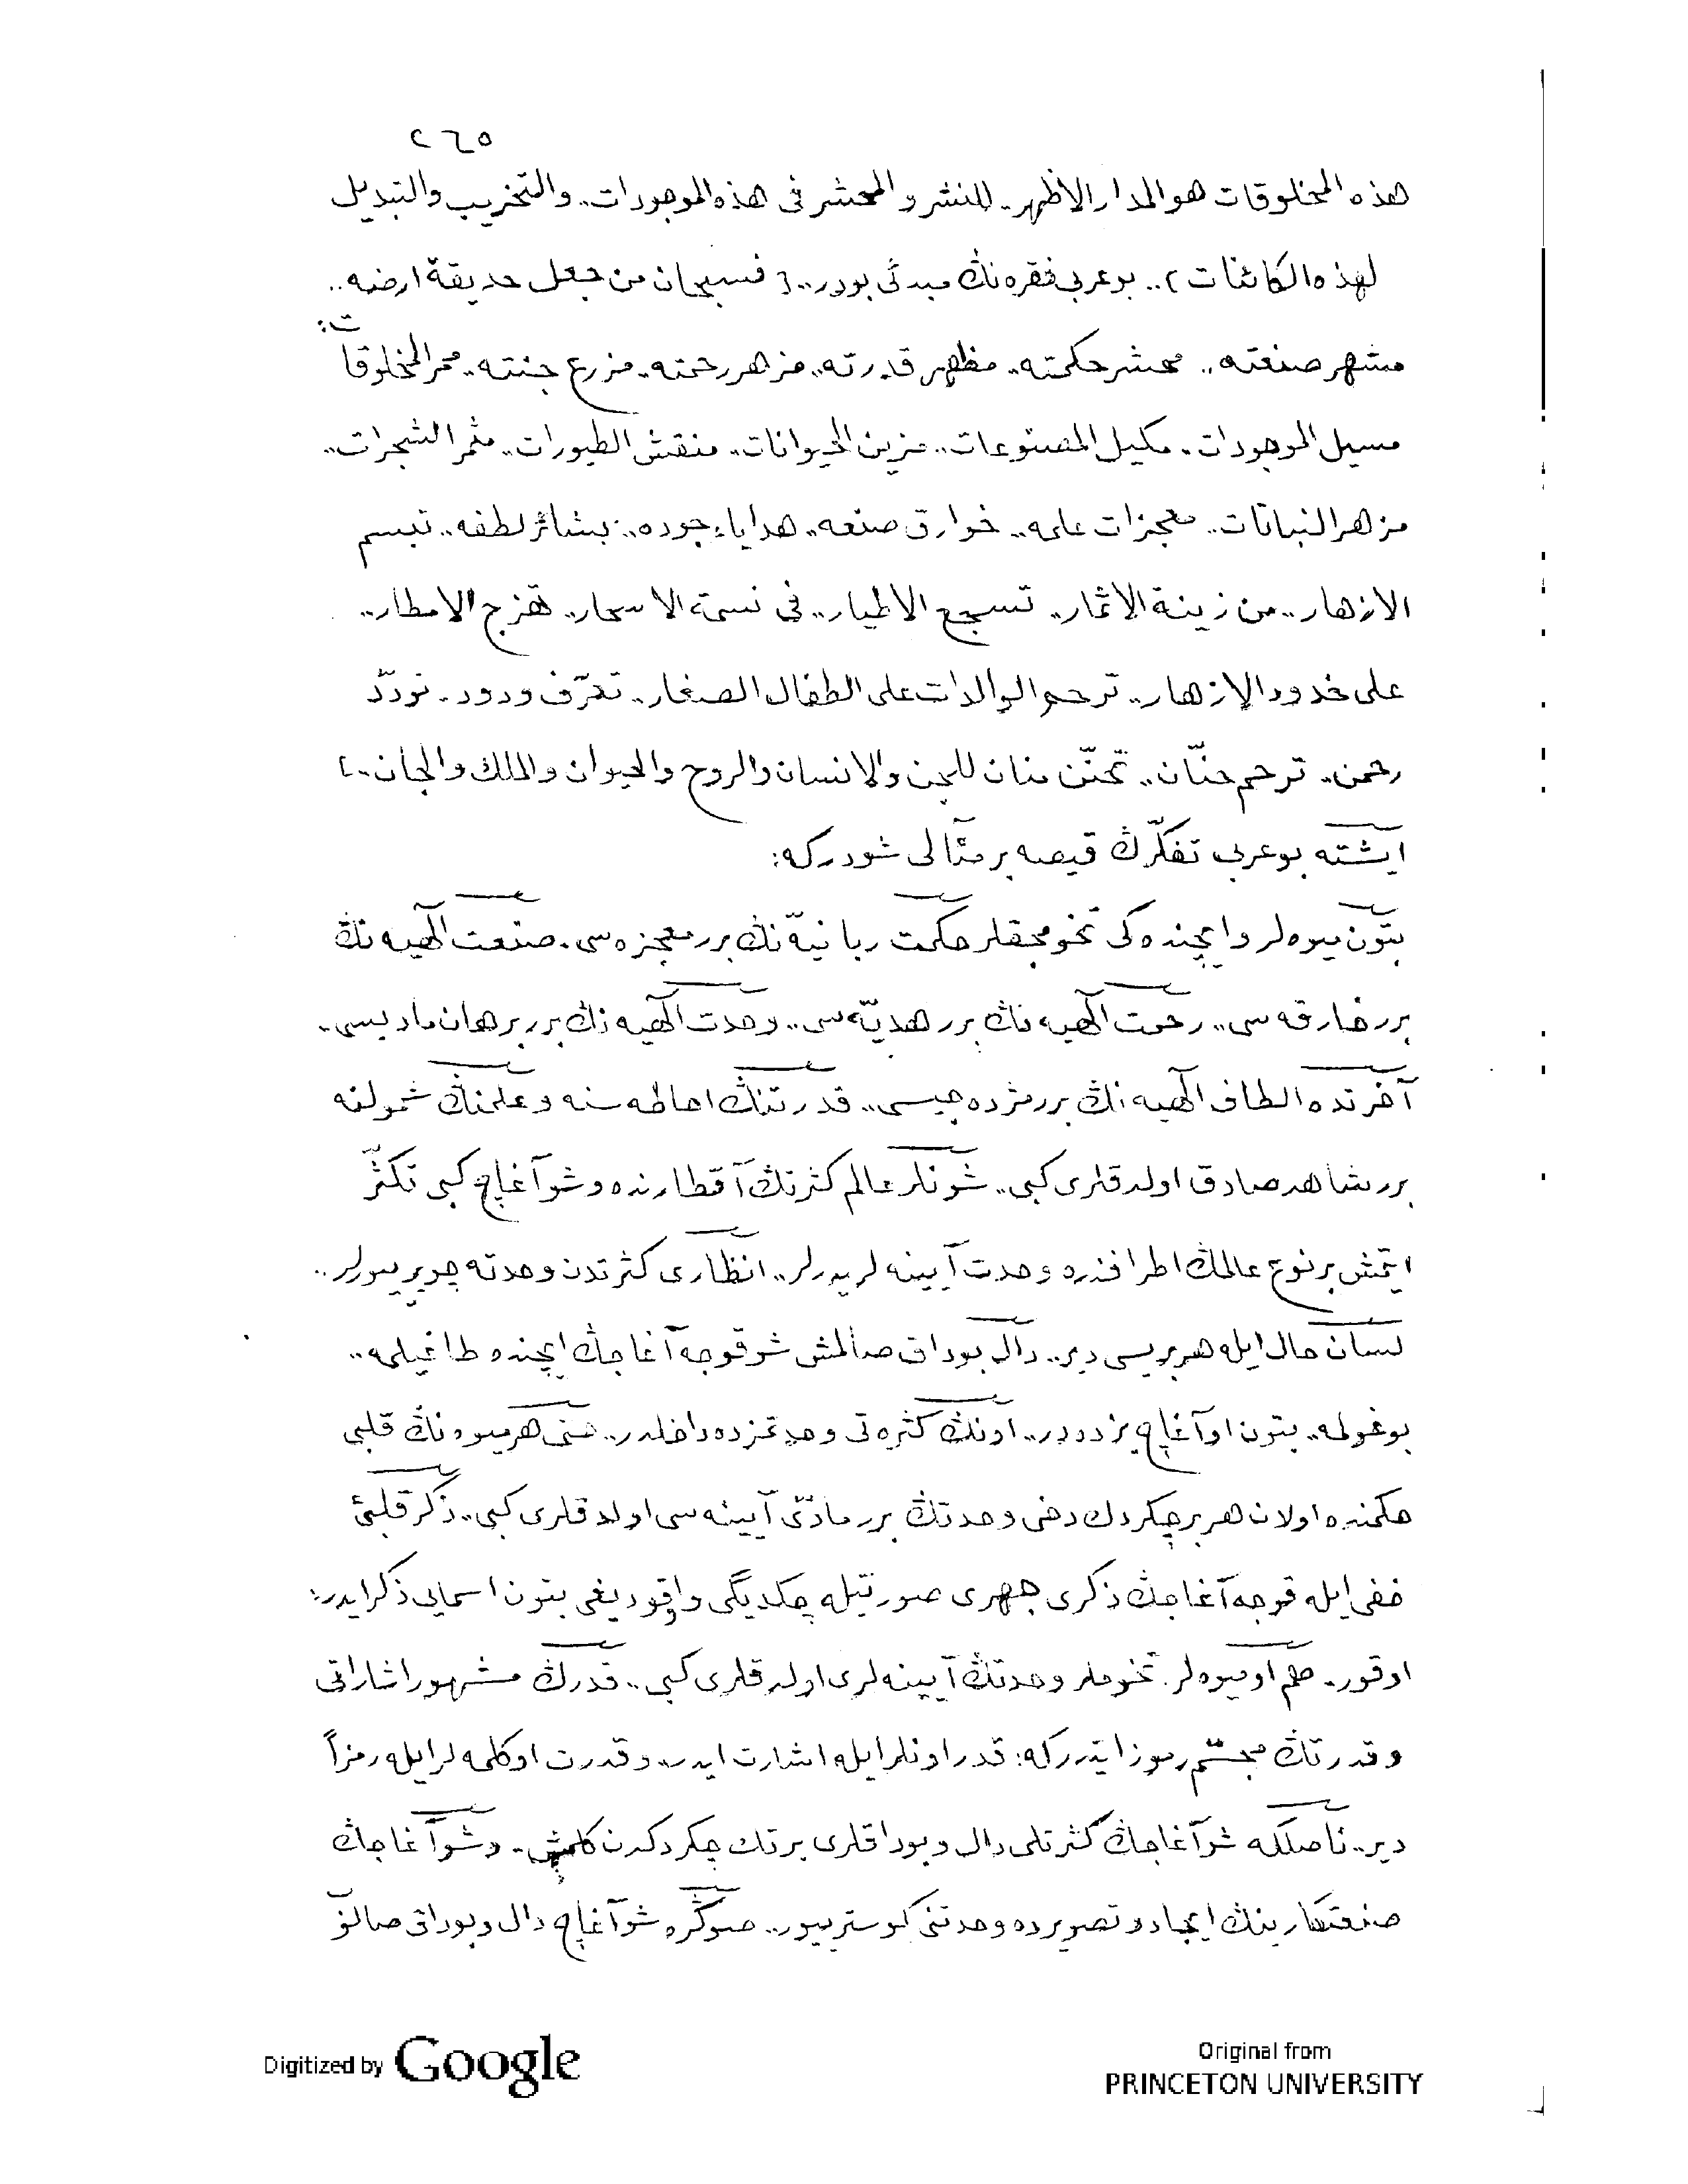 ٢٦٥
هذه المخلوقات هو المدار الاظهر.. للنشر و المحشر فى هذه الموجودات.. والتخريب والتبديل
لهذه الكائنات ).. بو عربى فقره نڭ مبدئى بودر.. ( فسبحان من جعل حديقة ارضه..
مشهر صنعته.. محشر حكمته.. مظهر قدرته.. مزهر رحمته.. مزرع جنته.. ممر المخلوقات:
مسيل الموجودات.. مكيل المصنوعات.. مزين الحيوانات.. منقش الطيورات.. مثمر الشجرات..
مزهر النباتات.. معجزات علمه.. خوارق صنعه.. هداياء جوده.. بشائر لطفه.. تبسم
الازهار.. من زينة الاثمار.. تسجع الاطيار.. فى نسمة الاسحار.. تهزج الامطار..
على خدود الازهار.. ترحم الوالدات على الطفال الصغار.. تعرّف ودود.. تودّد
رحمن.. ترحم حنّان.. تحنّن منان للجن والانسان والروح والحيوان والملك والجان..)
ايشته بو عربى تفكّرڭ قيصه بر مئالى شودركه:
بتون ميوه لر و ايچنده كى تخومجقلر حكمت ربانيه نڭ برر معجزه سى.. صنعت الٓهيه نڭ
برر خارقه سى.. رحمت الٓهيه نڭ برر هديّه سى.. وحدت الٓهيه نڭ برر برهان ماديسى..
آخرتده الطاف الٓهيه نڭ برر مژده جيسى.. قدرتنڭ احاطه سنه و علمنڭ شمولنه
برر شاهد صادق اولدقلرى كبى.. شونلر عالم كثرتڭ آقطارنده و شو آغاچ كبى تكثّر
ايتمش بر نوع عالمڭ اطرافنده وحدت آيينه لريدرلر.. انظارى كثرتدن وحدته چويرييورلر..
لسان حال ايله هر بريسى دير.. دال بوداق صالمش شو قوجه آغاجڭ ايچنده طاغيلمه..
بوغولمه.. بتون او آغاچ بزده در.. اونڭ كثره تى وحدتمزده داخلدر.. حتى هر ميوه نڭ قلبى
حكمنده اولان هر بر چكردك دخى وحدتڭ برر مادّى آيينه سى اولدقلرى كبى.. ذكر قلبئ
خفى ايله قوجه آغاجڭ ذكرى جهرى صورتيله چكديگى واقوديغى بتون اسمايى ذكر ايدر:
اوقور.. هم او ميوه لر.. تخوملر وحدتڭ آيينه لرى اولدقلرى كبى.. قدرڭ مشهور اشاراتى
و قدرتڭ مجسّم رموزاتيدركه: قدر اونلر ايله اشارت ايدر.. و قدرت او كلمه لر ايله رمزاً
دير.. ناصلكه شو آغاجڭ كثرتلى دال و بوداقلرى بر تك چكردكدن كلمش.. و شو آغاجڭ
صنعتكارينڭ ايجاد و تصويرده وحدتنى كوسترييور.. صوڭره شو آغاچ دال و بوداق صالوب
Digitized by Google
Original from
PRINCETON UNIVERSITY